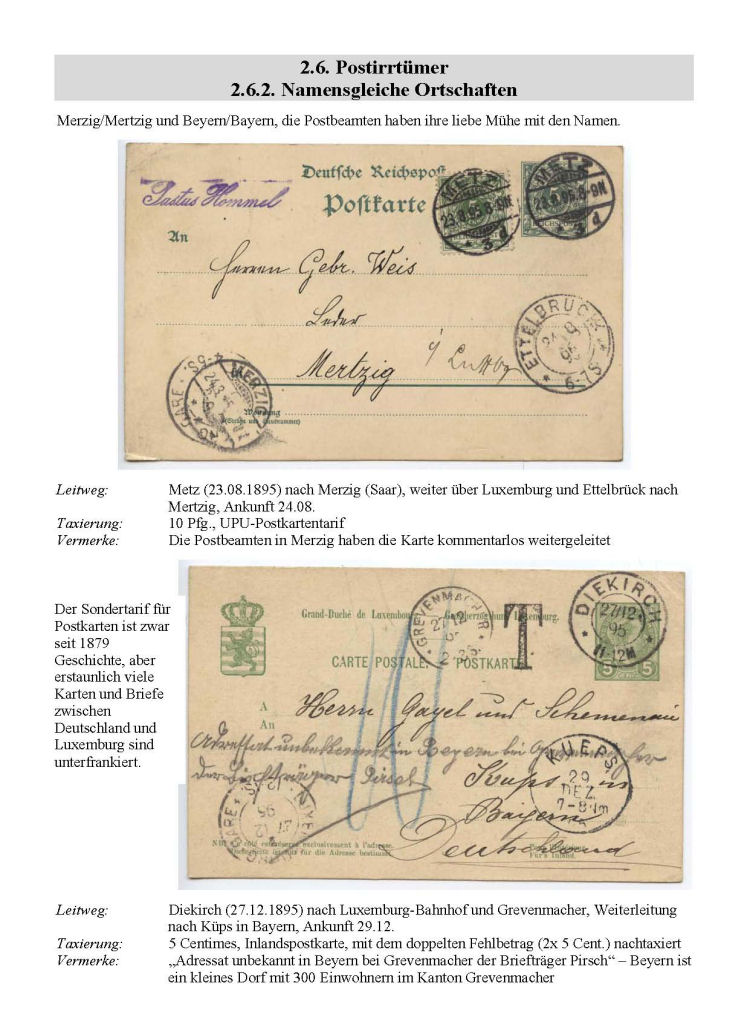 2.6. Postirrtümer
2.6.2. Namensgleiche Ortschaften
Merzig/Mertzig und Beyern/Bayern, die Postbeamten haben ihre liebe Mühe mit den Namen.
Deutsche Reichspost
Postkarte
Justus Hommel
METZ
23.8.95.8-9N
* 3 d
METZ
23.8.95.8-9N
* 3 d
An
Herren Gebr. Weis
Leder
Mertzig
ETTELBRUCK
95
6-7S
GARE
4-5S.
MERZIG
Wohnung
(Straße und Hausnummer)
Leitweg: Metz (23.08.1895) nach Merzig (Saar), weiter über Luxemburg und Ettelbrück nach
Mertzig, Ankunft 24.08.
Taxierung: 10 Pfg., UPU-Postkartentarif
Vermerke: Die Postbeamten in Merzig haben die Karte kommentarlos weitergeleitet
Der Sondertarif für
Postkarten ist zwar
seit 1879
Geschichte, aber
erstaunlich viele
Karten und Briefe
zwischen
Deutschland und
Luxemburg sind
unterfrankiert.
Grand-Duché de Luxembourg.
GREVENMACHER
T
DIEKIRCH
27/12
95
11-12M
5 5
CARTE POSTALE. POSTKARTE
A
An
Herrn Gayel und Schemenau
Adressat unbekannt in Beyern bei Grevenmacher
der Briefträger Pirsch
Kups in
Baijern
Deutschland
KUEPS
29
DEZ.
7-8
GARE
27 12
95
côté réservé exclusivement à l'adresse.
ist nur für die Adresse bestimmt
Leitweg: Diekirch (27.12.1895) nach Luxemburg-Bahnhof und Grevenmacher, Weiterleitung
nach Küps in Bayern, Ankunft 29.12.
Taxierung: 5 Centimes, Inlandspostkarte, mit dem doppelten Fehlbetrag (2x 5 Cent.) nachtaxiert
Vermerke: „Adressat unbekannt in Beyern bei Grevenmacher der Briefträger Pirsch“ – Beyern ist
ein kleines Dorf mit 300 Einwohnern im Kanton Grevenmacher